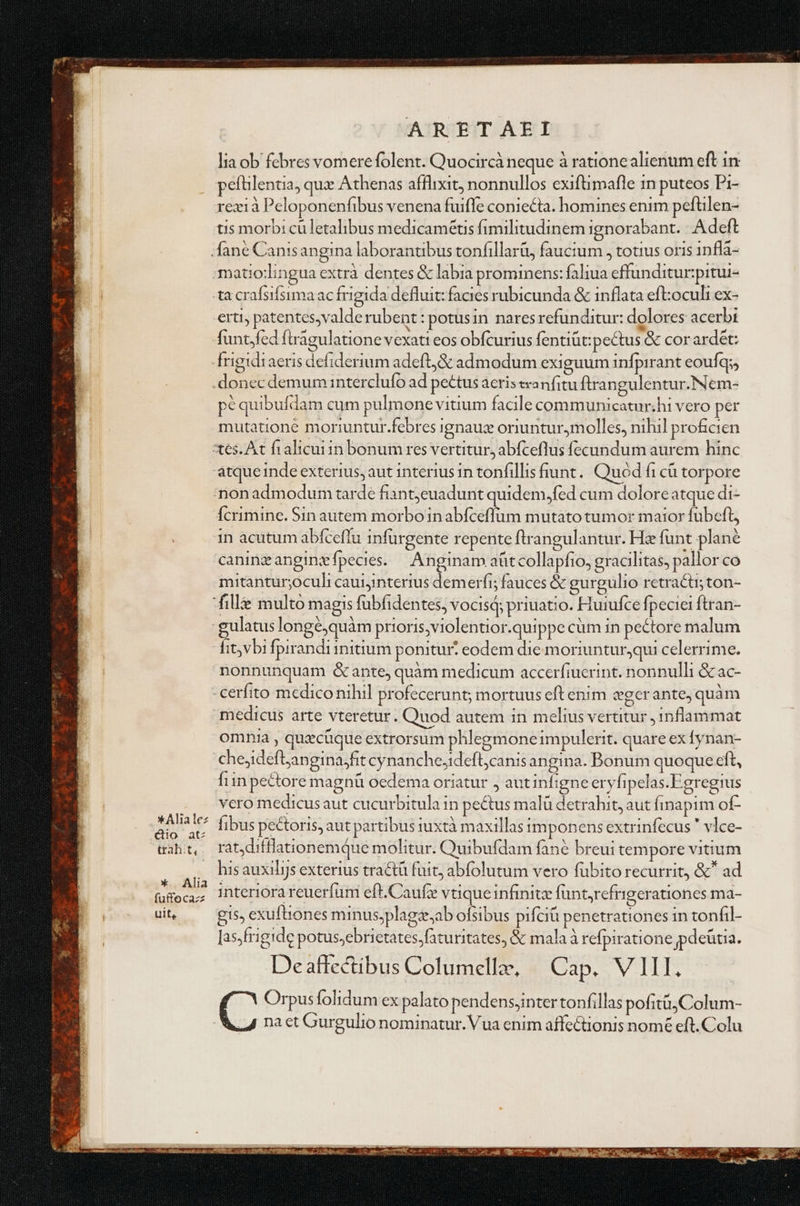 ARETAEI
lia ob febres vomere solent. Quocircà neque à ratione alienum est in
pestilentia, quæ Athenas afflixit, nonnullos existimasse in puteos Pi-
rexi à Peloponensibus venena fuisse coniecta. homines enim pestilen-
tis morbi cũ letalibus medicamẽtis similitudinem ignorabant. Adest
sanè Canis angina laborantibus tonsillarũ, faucium, totius oris inflã-
matio: lingua extrà dentes & labia prominens: saliua effunditur: pitui-
ta crassissima ac frigida defluit: facies rubicunda & inflata est: oculi ex-
erti, patentes, valde rubent: potus in nares refunditur: dolores acerbi
sunt, sed strãgulatione vexati eos obscurius sentiũt: pectus & cor ardẽt:
frigidi aeris desiderium adest, & admodum exiguum inspirant eousq;,
donec demum intercluso ad pectus aeris transitu strangulentur. Nem-
pè quibusdam cum pulmone vitium facile communicatur. hi vero per
mutationẽ moriuntur. febres ignauæ oriuntur, molles, nihil proficien
tes. At si alicui in bonum res vertitur, abscessus secundum aurem hinc
atque inde exterius, aut interius in tonsillis fiunt. Quòd si cũ torpore
non admodum tarde fiant, euadunt quidem, sed cum dolore atque di-
scrimine. Sin autem morbo in abscessum mutato tumor maior subest,
in acutum abscessu insurgente repente strangulantur. Hæ sunt planè
caninæ anginæ species. Anginam aũt collapsio, gracilitas, pallor co
mitantur; oculi caui, interius demersi; fauces & gurgulio retracti; ton-
sillæ multo magis subsidentes, vocisq; priuatio. Huiusce speciei stran-
gulatus longè, quàm prioris, violentior. quippe cùm in pectore malum
sit, vbi spirandi initium ponitur: eodem die moriuntur, qui celerrime.
nonnunquam & ante, quàm medicum accersiuerint. nonnulli & ac-
cersito medico nihil profecerunt; mortuus est enim æger ante, quàm
medicus arte vteretur. Quod autem in melius vertitur, inflammat
omnia, quæcũque extrorsum phlegmone impulerit. quare ex synan-
che, idest, angina, fit cynanche, idest, canis angina. Bonum quoque est,
si in pectore magnũ oedema oriatur, aut insigne erysipelas. Egregius
vero medicus aut cucurbitula in pectus malũ detrahit, aut sinapim of-
*Alia lec-
ctio at-
trahit,
sibus pectoris, aut partibus iuxtà maxillas imponens extrinsecus * vlce-
rat, difflationemque molitur. Quibusdam sanè breui tempore vitium
his auxilijs exterius tractũ fuit, absolutum vero subito recurrit, &* ad
* Alia
suffoca-
uit,
interiora reuersum est. Causæ vtique infinitæ sunt, refrigerationes ma-
gis, exustiones minus, plagæ, ab ossibus pisciũ penetrationes in tonsil-
las, frigidę potus, ebrietates, saturitates, & mala à respiratione ꝓdeũtia.
De affectibus Columellæ, Cap. VIII.
Corpus solidum ex palato pendens, inter tonsillas positũ, Colum-
na et Gurgulio nominatur. Vua enim affectionis nomẽ est. Colu